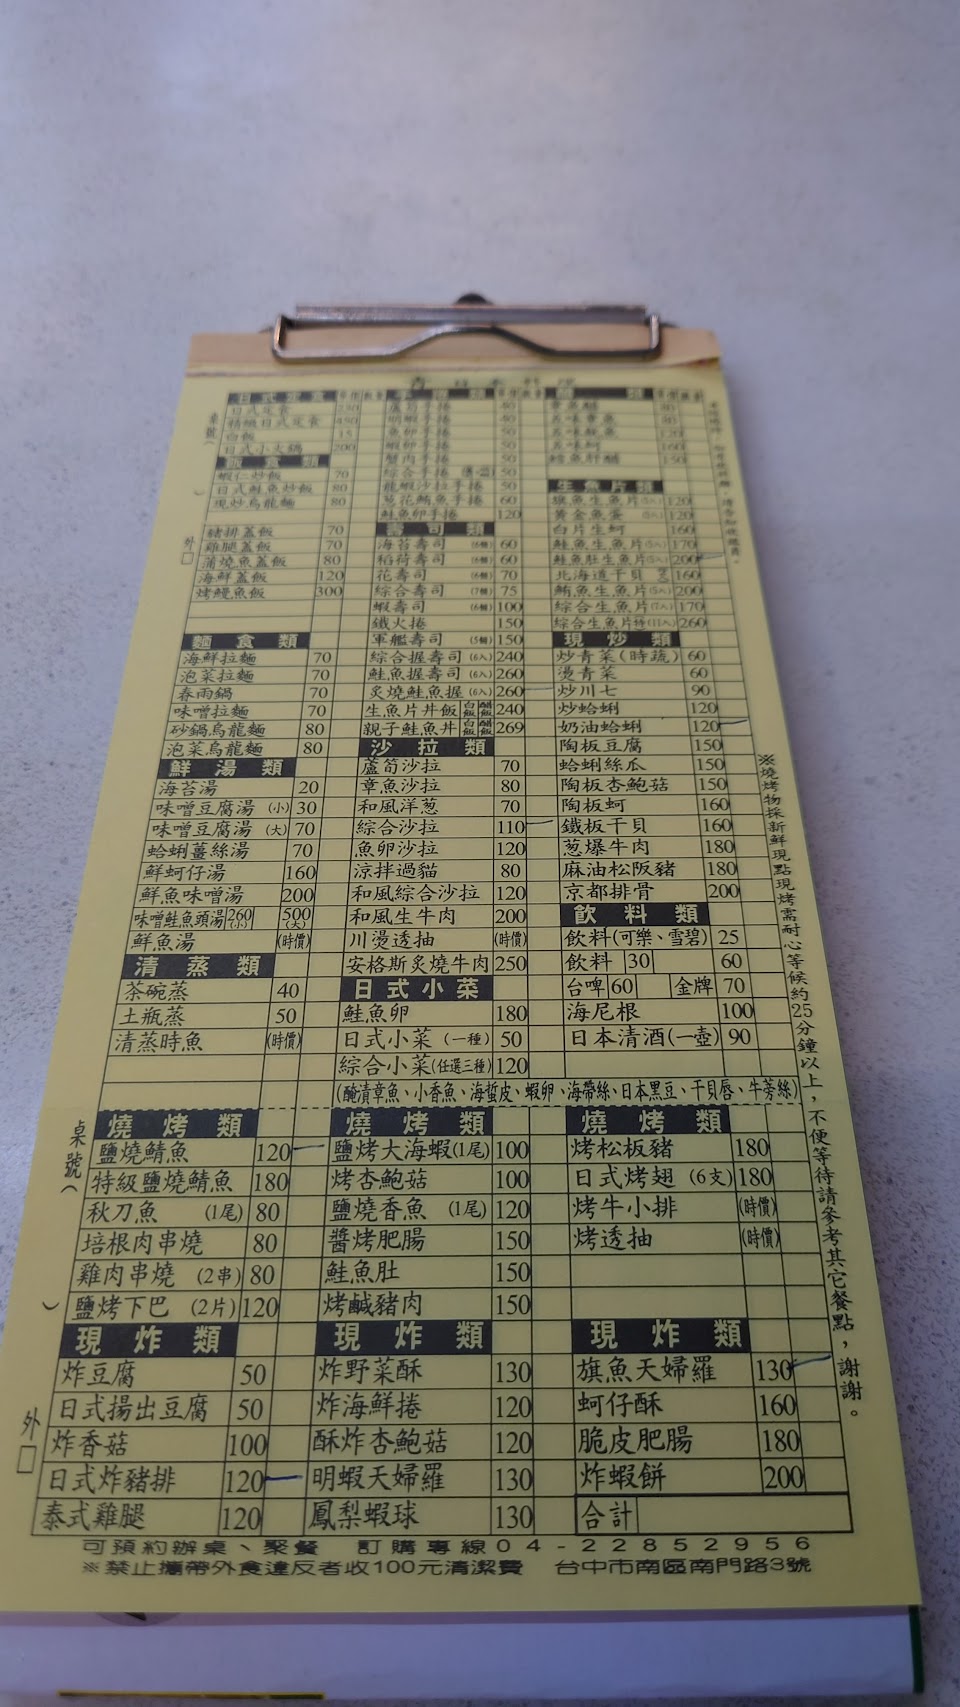 日本料理
日式定食 單價 數量
日式定食 230
精緻日式定食 450
白飯 15
日式小火鍋 200
飯食類
蝦仁炒飯 70
日式鮭魚炒飯 80
現炒烏龍麵 80
豬排蓋飯 70
雞腿蓋飯 70
蒲燒魚蓋飯 80
海鮮蓋飯 120
烤鰻魚飯 300
麵食類
海鮮拉麵 70
泡菜拉麵 70
春雨鍋 70
味噌拉麵 70
砂鍋烏龍麵 80
泡菜烏龍麵 80
鮮湯類
海苔湯 20
味噌豆腐湯 (小) 30
味噌豆腐湯 (大) 70
蛤蜊薑絲湯 70
鮮蚵仔湯 160
鮮魚味噌湯 200
味噌鮭魚頭湯 260(小) 500(大)
鮮魚湯 (時價)
清蒸類
茶碗蒸 40
土瓶蒸 50
清蒸時魚 (時價)
手捲類
蘆筍手捲 40
明蝦手捲 50
魚卵手捲 50
蝦卵手捲 50
蟹肉手捲 50
綜合手捲 50
龍蝦沙拉手捲 50
葱花鮪魚手捲 60
鮭魚卵手捲 120
壽司類
海苔壽司 (6個) 60
稻荷壽司 (6個) 60
花壽司 (6個) 70
綜合壽司 (7個) 75
蝦壽司 (6個) 100
鐵火捲 150
軍艦壽司 (5個) 150
綜合握壽司 (6入) 240
鮭魚握壽司 (6入) 260
炙燒鮭魚握 (6入) 260
生魚片丼飯 白飯 醋飯 240
親子鮭魚丼 白飯 醋飯 269
沙拉類
蘆筍沙拉 70
章魚沙拉 80
和風洋葱 70
綜合沙拉 110
魚卵沙拉 120
涼拌過貓 80
和風綜合沙拉 120
和風生牛肉 200
川燙透抽 (時價)
安格斯炙燒牛肉 250
日式小菜
鮭魚卵 180
日式小菜 (一種) 50
綜合小菜 (任選三種) 120
(醃漬章魚、小香魚、海蜇皮、蝦卵、海帶絲、日本黑豆、干貝唇、牛蒡絲)
醋類
章魚醋 80
五味章魚 80
五味蚵 160
鱈魚肝醋 150
生魚片類
旗魚生魚片 (5入) 120
黃金魚蛋 (5入) 120
白片生蚵 160
鮭魚生魚片 (5入) 170
鮭魚肚生魚片 (5入) 200
北海道干貝 160
鮪魚生魚片 (5入) 200
綜合生魚片 (7入) 170
綜合生魚片特 (11入) 260
現炒類
炒青菜 (時蔬) 60
燙青菜 60
炒川七 90
炒蛤蜊 120
奶油蛤蜊 120
陶板豆腐 150
蛤蜊絲瓜 150
陶板杏鮑菇 150
陶板蚵 160
鐵板干貝 160
葱爆牛肉 180
麻油松阪豬 180
京都排骨 200
飲料類
飲料(可樂、雪碧) 25
飲料 30 60
台啤 60 金牌 70
海尼根 100
日本清酒(一壺) 90
※燒烤物採新鮮現點現烤需耐心等候約25分鐘以上，不便等待請參考其它餐點，謝謝。
桌號( )
外□
桌號( )
外□
燒烤類
鹽燒鯖魚 120
特級鹽燒鯖魚 180
秋刀魚 (1尾) 80
培根肉串燒 80
雞肉串燒 (2串) 80
鹽烤下巴 (2片) 120
燒烤類
鹽烤大海蝦(1尾) 100
烤杏鮑菇 100
鹽燒香魚 (1尾) 120
醬烤肥腸 150
鮭魚肚 150
烤鹹豬肉 150
燒烤類
烤松板豬 180
日式烤翅 (6支) 180
烤牛小排 (時價)
烤透抽 (時價)
現炸類
炸豆腐 50
日式揚出豆腐 50
炸香菇 100
日式炸豬排 120
泰式雞腿 120
現炸類
炸野菜酥 130
炸海鮮捲 120
酥炸杏鮑菇 120
明蝦天婦羅 130
鳳梨蝦球 130
現炸類
旗魚天婦羅 130
蚵仔酥 160
脆皮肥腸 180
炸蝦餅 200
合計
可預約辦桌、聚餐 訂購專線04-22852956
※禁止攜帶外食違反者收100元清潔費 台中市南區南門路3號